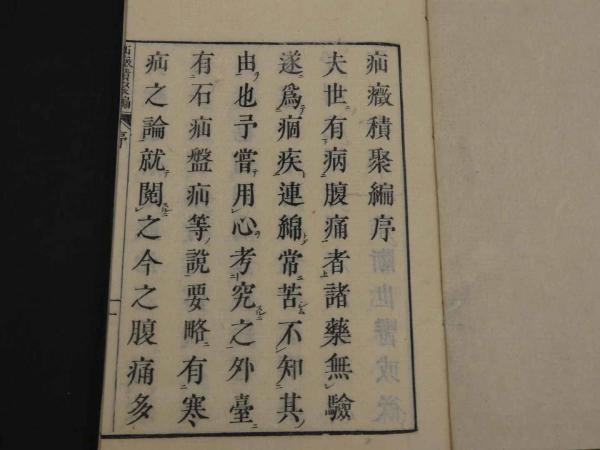 疝癥積聚編序
夫世有病腹痛者諸藥無驗
遂爲痼疾連綿常苦不知其
由也予嘗用心考究之外臺
有石疝盤疝等說要略有寒
疝之論就閱之今之腹痛多
疝癥積聚編 序 一